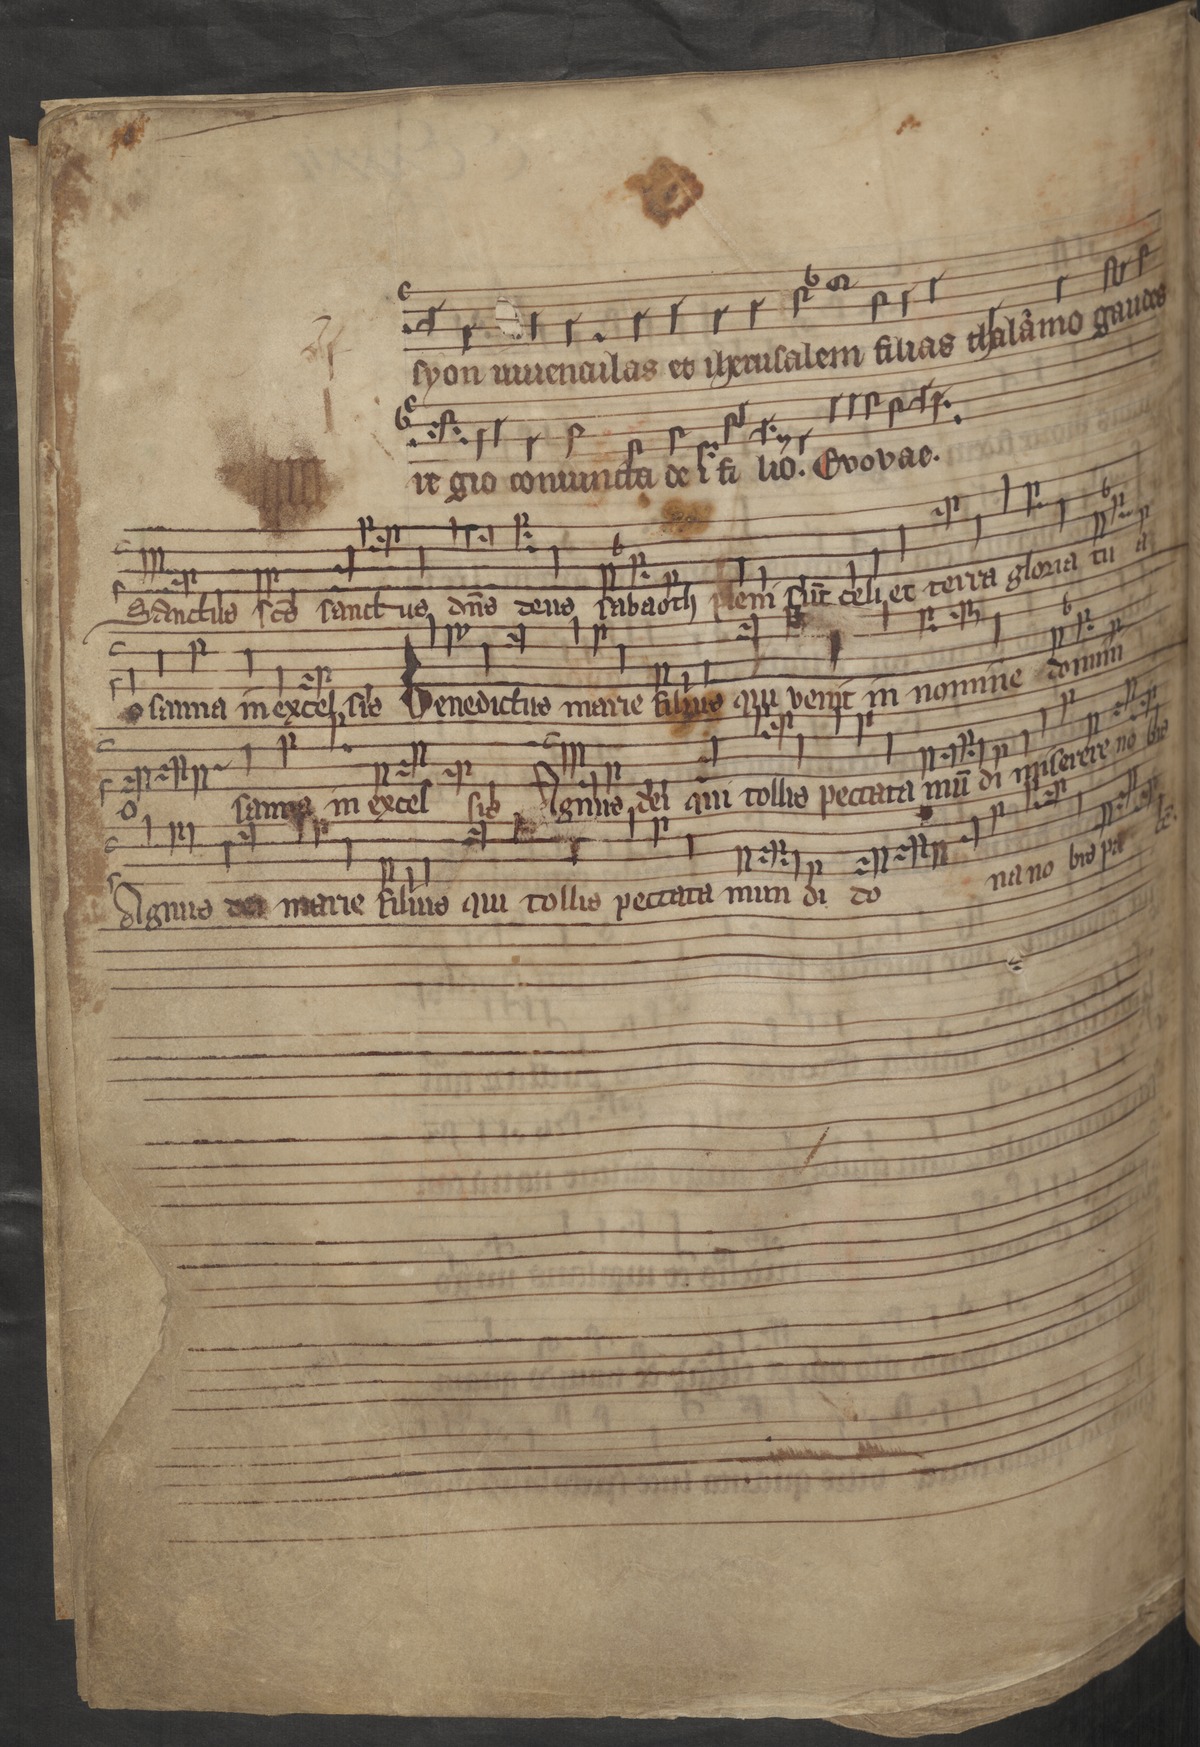 syon iuuenculas et iherusalem filias thalamo gaudes
re gio coniuncta dei fi lio. Evovae.
Sanctus scs sanctus dns deus sabaoth pleni sunt celi et terra gloria tu a
o sanna in excel sis Benedictus marie filius qui venit in nomine domini
o sanna in excel sis Agnus dei qui tollis peccata mun di miserere no bis
Agnus dei marie filius qui tollis peccata mun di do na no bis pa ce.